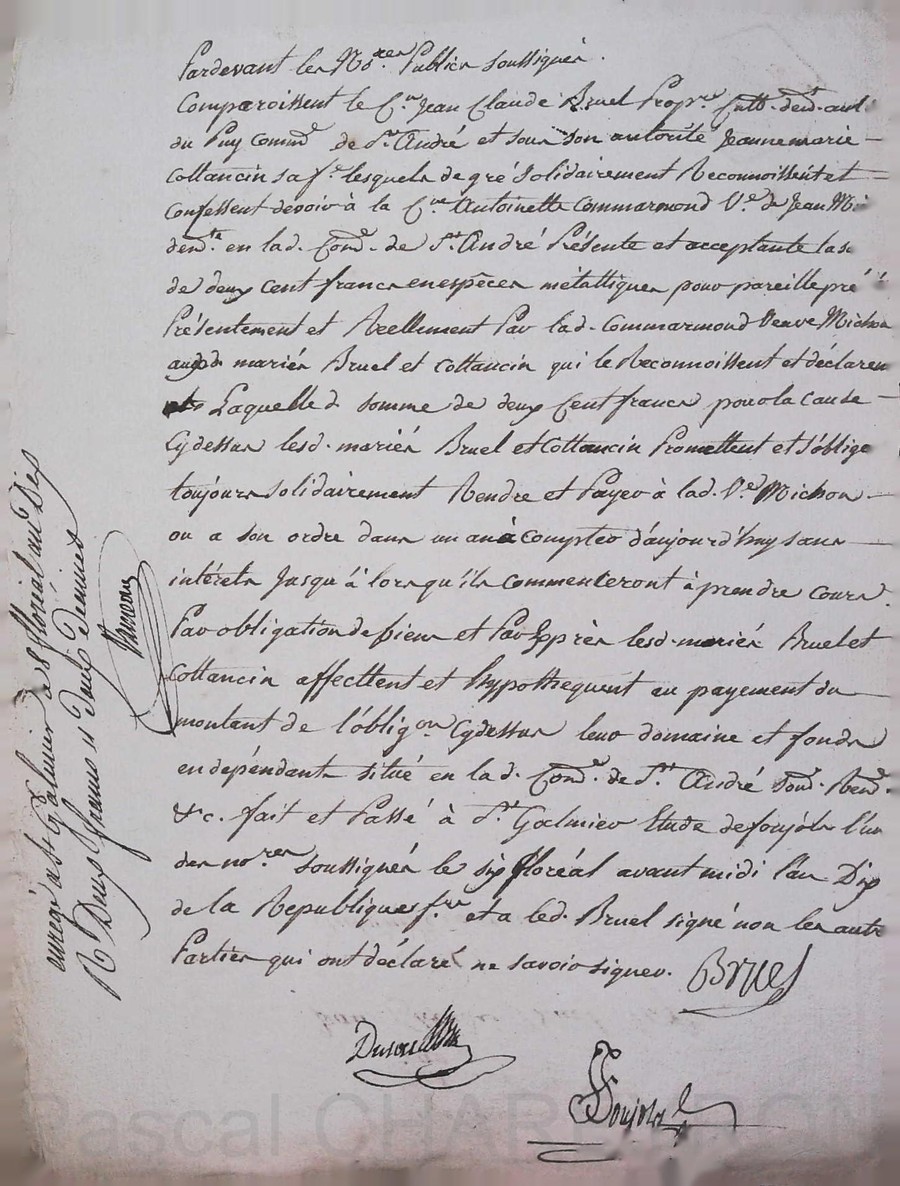 Pardevant les No.res Publics soussignés.
Comparoissent le C.en Jean Claude Bruel Prop.re Cult. dem.t au l.
du Puy Comm.e de S.t André et sous son autorité Jeannemarie
Cottancin sa f.e lesquels de gré solidairement Reconnoissent et
Confessent devoir à la C.ne Antoinette Commarmond V.e de Jean Mi
dem.te en lad. Com.e de S.t André Présente et acceptante las
de deux cent francs en espèces métalliques pour pareille pré
Présentement et Reellement Par lad. Commarmond Veuve Michon
auxd. mariés Bruel et Cottancin qui le Reconnoissent et déclaren
Laquelle d. somme de deux Cent francs pour la cause
Cydessus lesd. mariés Bruel et Cottancin Promettent et s'oblige
toujours solidairement Rendre et Payer à lad. V.e Michon
ou a son ordre dans un an à compter d'aujourd'huy sans
intérets Jusqu'à lorsqu'ils commenceront à prendre cours.
Par obligation de biens et Par Exprès lesd. mariés Bruel et
Cottancin affecttent et hypothequent au payement du
montant de l'oblig.on Cydessus leur domaine et fonds
en dépendants situé en lad. Com.e de S.t André Som.n Ren.n
&c. fait et Passé à S.t Galmier Etude de foujols l'un
des no.res soussignés le six floréal avant midi l'an Dix
de la Republique f.se et a led. Bruel signé non les autr
Parties qui ont déclaré ne savoir signer. Bruel
Foujols
enreg. à St Galmier le 8 floréal an Dix
R. Deux francs